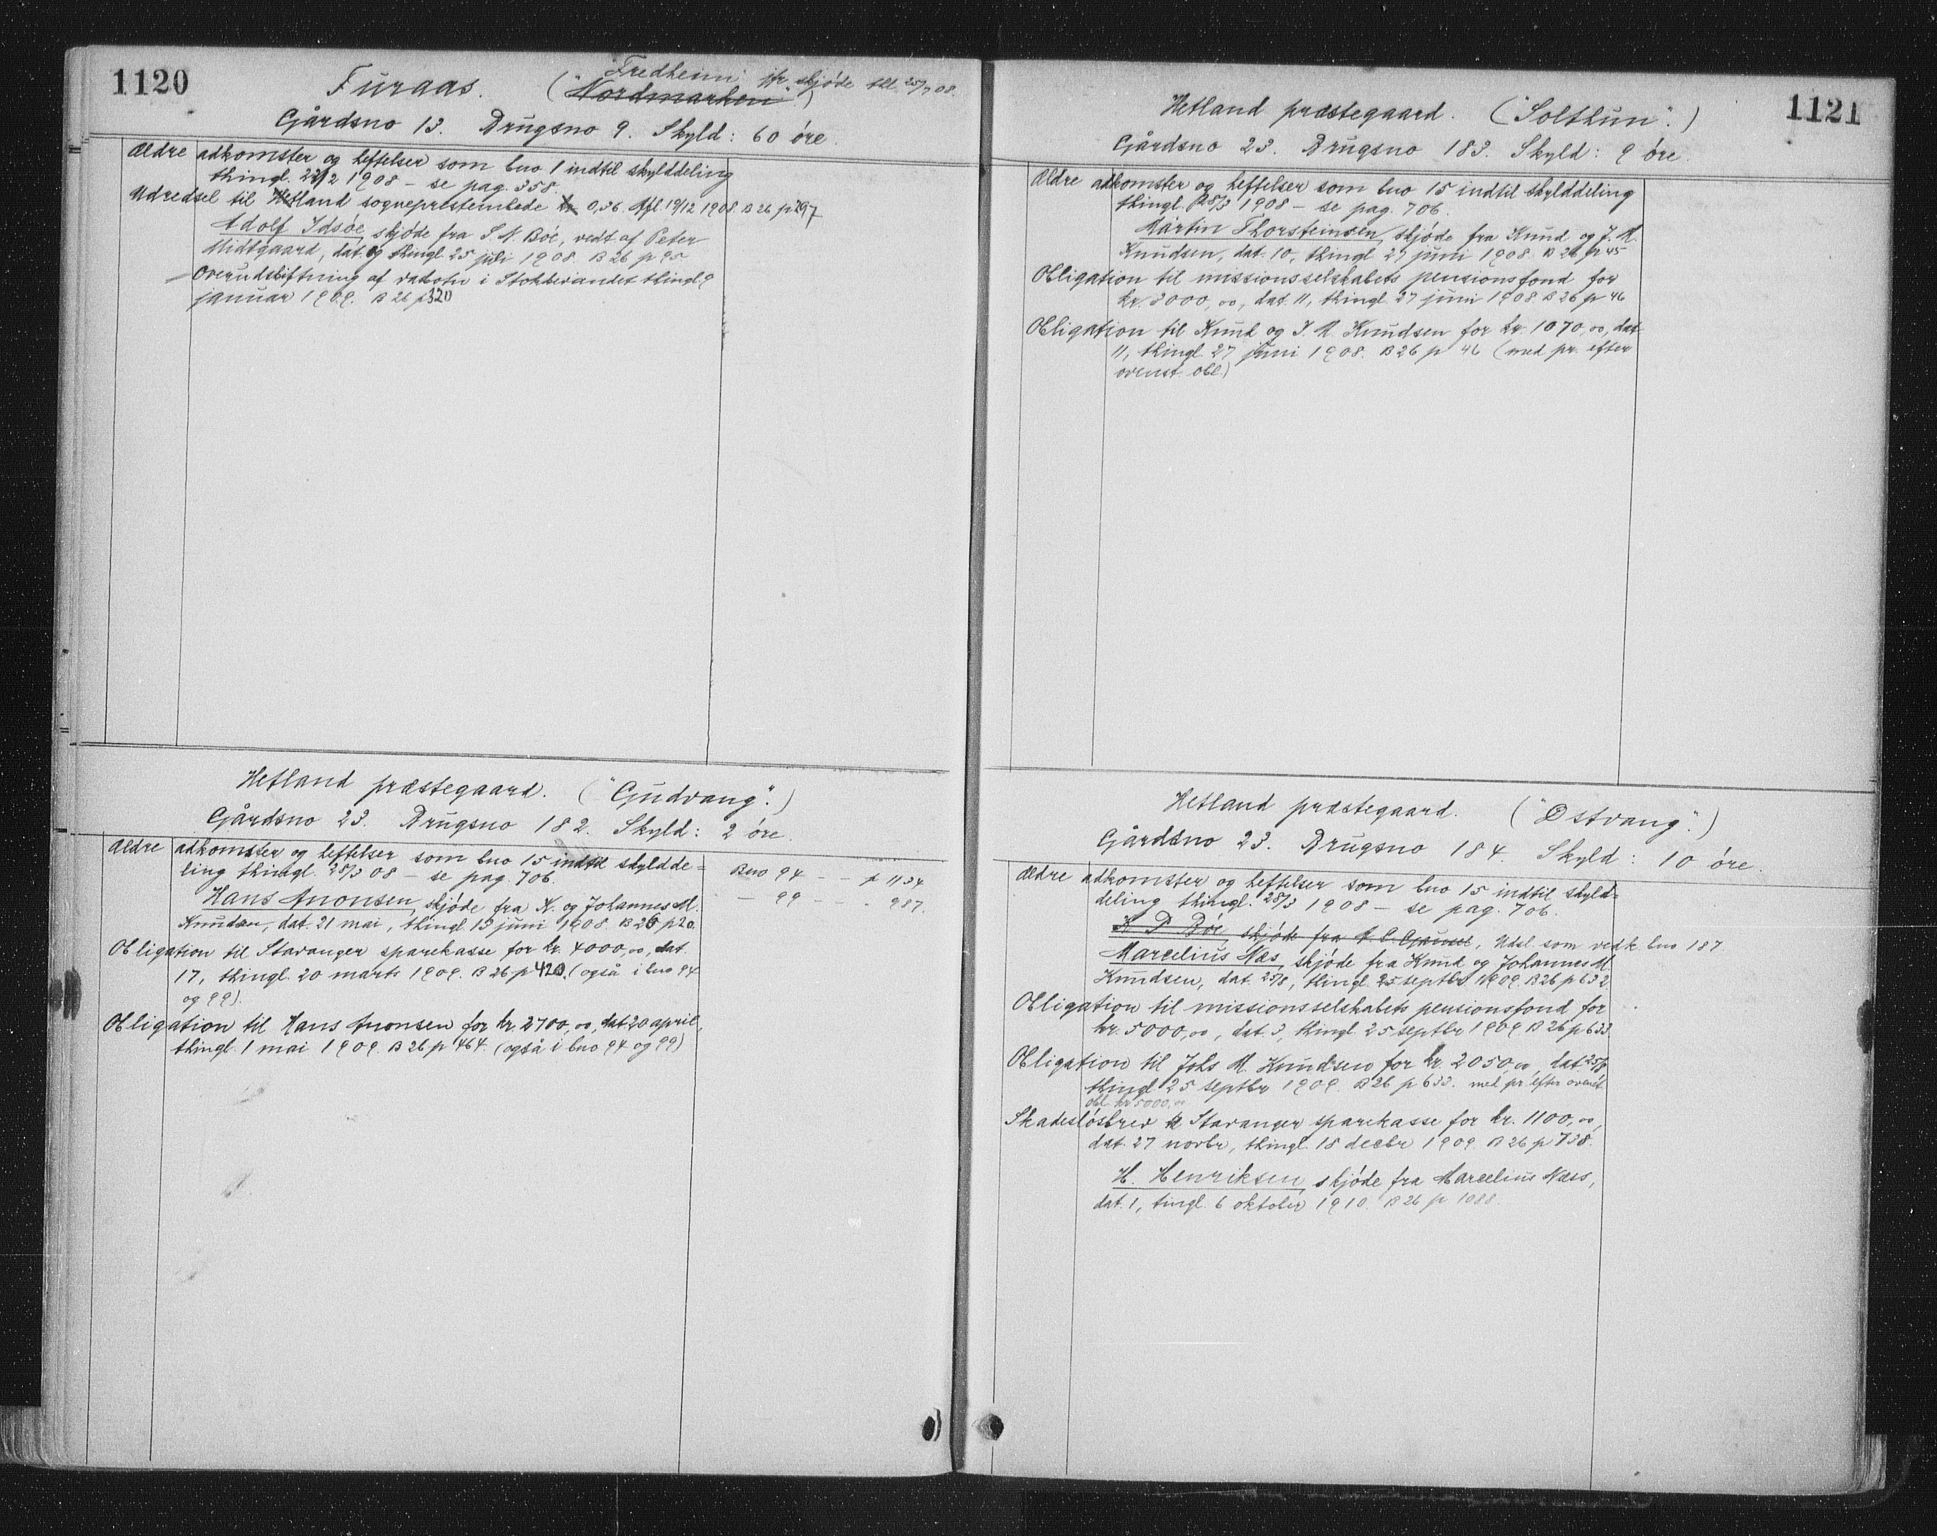 1120
Furaas. ("Fredheim" jfr. skjøde tll. 25/7 08.
"Nordmarken")
Gårdsno 13. Brugsno 9. Skyld: 60 øre.
Ældre adkomster og heftelser som bno 1 indtil skylddeling
thingl. 22/2 1908 – se pag. 358.
Udredsel til Hetland sogneprestembede kr 0,36. Afl. 19/12 1908. B 26 p 297
Adolf Idsøe, skjøde fra S. N. Bøe, vedt af Peter
Midtgaard, dat. og thingl. 25 juli 1908. B 26 p 95
Overudskiftning af i Stokkevandet thingl 9
januar 1909. B 26 p 320
Hetland præstegaard. ("Gudvang".)
Gårdsno 23. Brugsno 182. Skyld: 2 øre.
Ældre adkomster og heftelser som bno 15 indtil skyldde=
ling thingl. 28/3 08 – se pag. 706.
Bno 94 – – p 1134
– 99 – – . 987.
Hans Monsen, skjøde fra K. og Johannes M.
Knudsen, dat. 21 mai, thingl. 13 juni 1908. B 26 p 20.
Obligation til Stavanger sparekasse for kr. 4000,00, dat.
17, thingl. 20 marts 1909. B 26 p 420. (også i bno 94
og 99).
Obligation til Hans Monsen for kr. 2700,00, dat 20 april,
thingl. 1 mai 1909. B 26 p 464. (også i bno 94 og 99)
1121
Hetland præstegaard. ("Solthun".)
Gårdsno 23. Brugsno 183. Skyld: 9 øre.
Ældre adkomster og heftelser som bno 15 indtil skylddeling
thingl. 28/3 1908 – se pag. 706.
Martin Thorsteinsen, skjøde fra Knud og J. M.
Knudsen, dat. 10, thingl. 27 juni 1908. B 26 p 45
Obligation til missionsselskabets pensionsfond for
kr. 3000,00, dat. 11, thingl. 27 juni 1908 B 26 p 46
Obligation til Knud og J. M. Knudsen for kr. 1070,00, dat.
11, thingl. 27 juni 1908. B 26 p 46 (med pr. efter
ovenst. obl.)
Hetland præstegaard. ("Østvang".)
Gårdsno 23. Brugsno 184. Skyld: 10 øre.
Ældre adkomster og heftelser som bno 15 indtil skyld=
deling thingl. 28/3 1908 – se pag. 706.
K P Bøe, skjøde fra A C Gausel, Udsl. som vedk bno 187.
Marcelius Næs, skjøde fra Knud og Johannes M.
Knudsen, dat. 25/8, thingl. 25 septbr 1909. B 26 p 632.
Obligation til missionsselskabets pensionsfond for
kr. 5000,00, dat. 3, thingl. 25 septbr 1909 B 26 p 633
Obligation til Johs M. Knudsen for kr. 2050,00, dat 25/8
thingl 25 septbr 1909. B 26 p 633. med pr. efter ovenst
obl. kr 5000,00
Skadesløsbrev til Stavanger sparekasse for kr. 1100,00,
dat. 27 novbr, thingl. 18 decbr 1909. B 26 p 738.
H. Henriksen, skjøde fra Marcelius Næss,
dat. 1, tingl. 6 oktober 1910. B 26 p 1088.